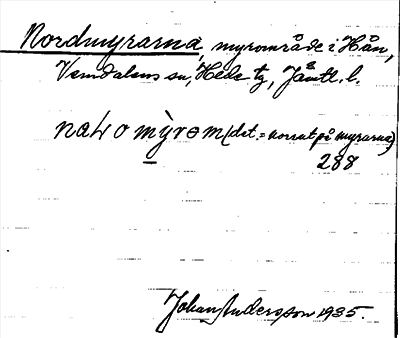 Nordmyrarna, myrområde i Hån,
Vemdalens sn, Hede tg, Jämtl. l.
na o mỳrəm (dat. = norrut på myrarna)
288
Johan Andersson 1935.